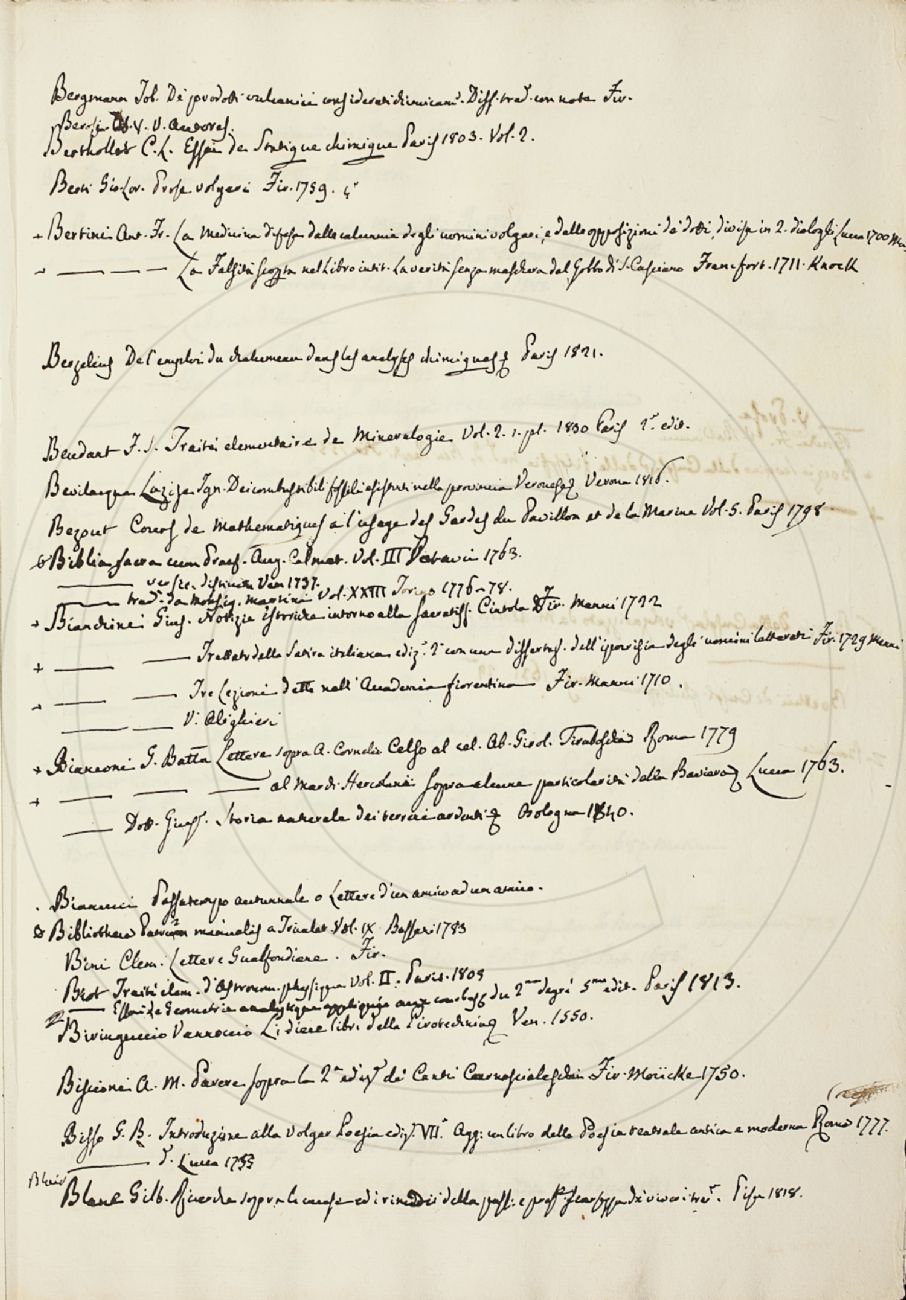 Bergmann Tob. De' prodotti vulcanici considerati chimicam.e Diss. trad. con note Fir.
Berthollet C. L. Essai de Statique chimique Paris 1803. Vol. 2.
Berti Gio. Lor. Prose volgari Fir. 1759. 4°
+ Bertini Ant. Fr. La Medicina difesa dalle calunnie degli uomini volgari, e dalle opposizioni de' dotti, divisa in 2. dialoghi Lucca 1700
— — — — La Falsità scoperta nel Libro intit. La verità senza maschera del Gobbo di S. Casciano Francfort. 1711. Knoch
Berzelius De l'emploi du chalumeau dans les analyses chimiques Paris 1821.
Beudant F. S. Traité elementaire de Mineralogie Vol. 2. 1. pt. 1830 Paris 2.e edit.
Bevilacqua Lazise Ign. Dei combustibili fossili esistenti nella provincia Veronese Verona 1816.
Bezout Cours de Mathematiques a l'usage des Gardes du Pavillon et de la Marine Vol. 5. Paris 1798
Biblia sacra cum Praef. Aug. Calmet. Vol. III Patavii 1763.
—— Ven 1737.
—— trad. da Monsig. Martini Vol. XXIII Torino 1776-78.
+ Bianchini Gius. Notizie istoriche intorno alla sacratiss. Cintola Fir. Manni 1722
+ —— —— Trattato della Satira italiana ediz. 2.a con una dissertaz. dell'ipocrisia degli uomini letterati Fir. 1729 Manni
—— —— Tre Lezioni dette nell'Accademia fiorentina Fir. Manni 1710.
—— —— V. Alighieri
+ Bianconi G. Batta Lettere sopra A. Cornelio Celso al cel. Ab. Girol. Tiraboschi Roma 1779
+ —— —— —— al Mar. di Hercolani sopra alcune particolarità della Baviera Lucca 1763.
—— Dott. Gius. Storia naturale dei terreni ardenti Bologna 1840.
Bianucci Passatempo autunnale o Lettere d'un amico ad un amico.
Bibliotheca Patrum manualis a Tricalet Vol. IX. Bassani 1783
Bini Clem. Lettere Gualfondiane. Fir.
Biot Traité elem. d'Astronom. physique Vol. II. Paris. 1805
—— Essai de Geometrie analytique appliquée aux courbes du 2.me degré 5.me edit. Paris 1813.
Biringuccio Vannoccio Li diece libri della Pirotechnia Ven. 1550.
Biscioni A. M. Parere sopra la 2.a ediz. de' Canti Carnascialeschi Fir. Moücke 1750.
Bisso G. B. Introduzione alla volgar Poesia ediz. VII. Agg. un libro della Poesia teatrale antica e moderna Roma 1777.
—— Lucca 1755
Blair
Blane Gilb. Ricerche sopra le cause ed i rimedii della Pisa 1818.